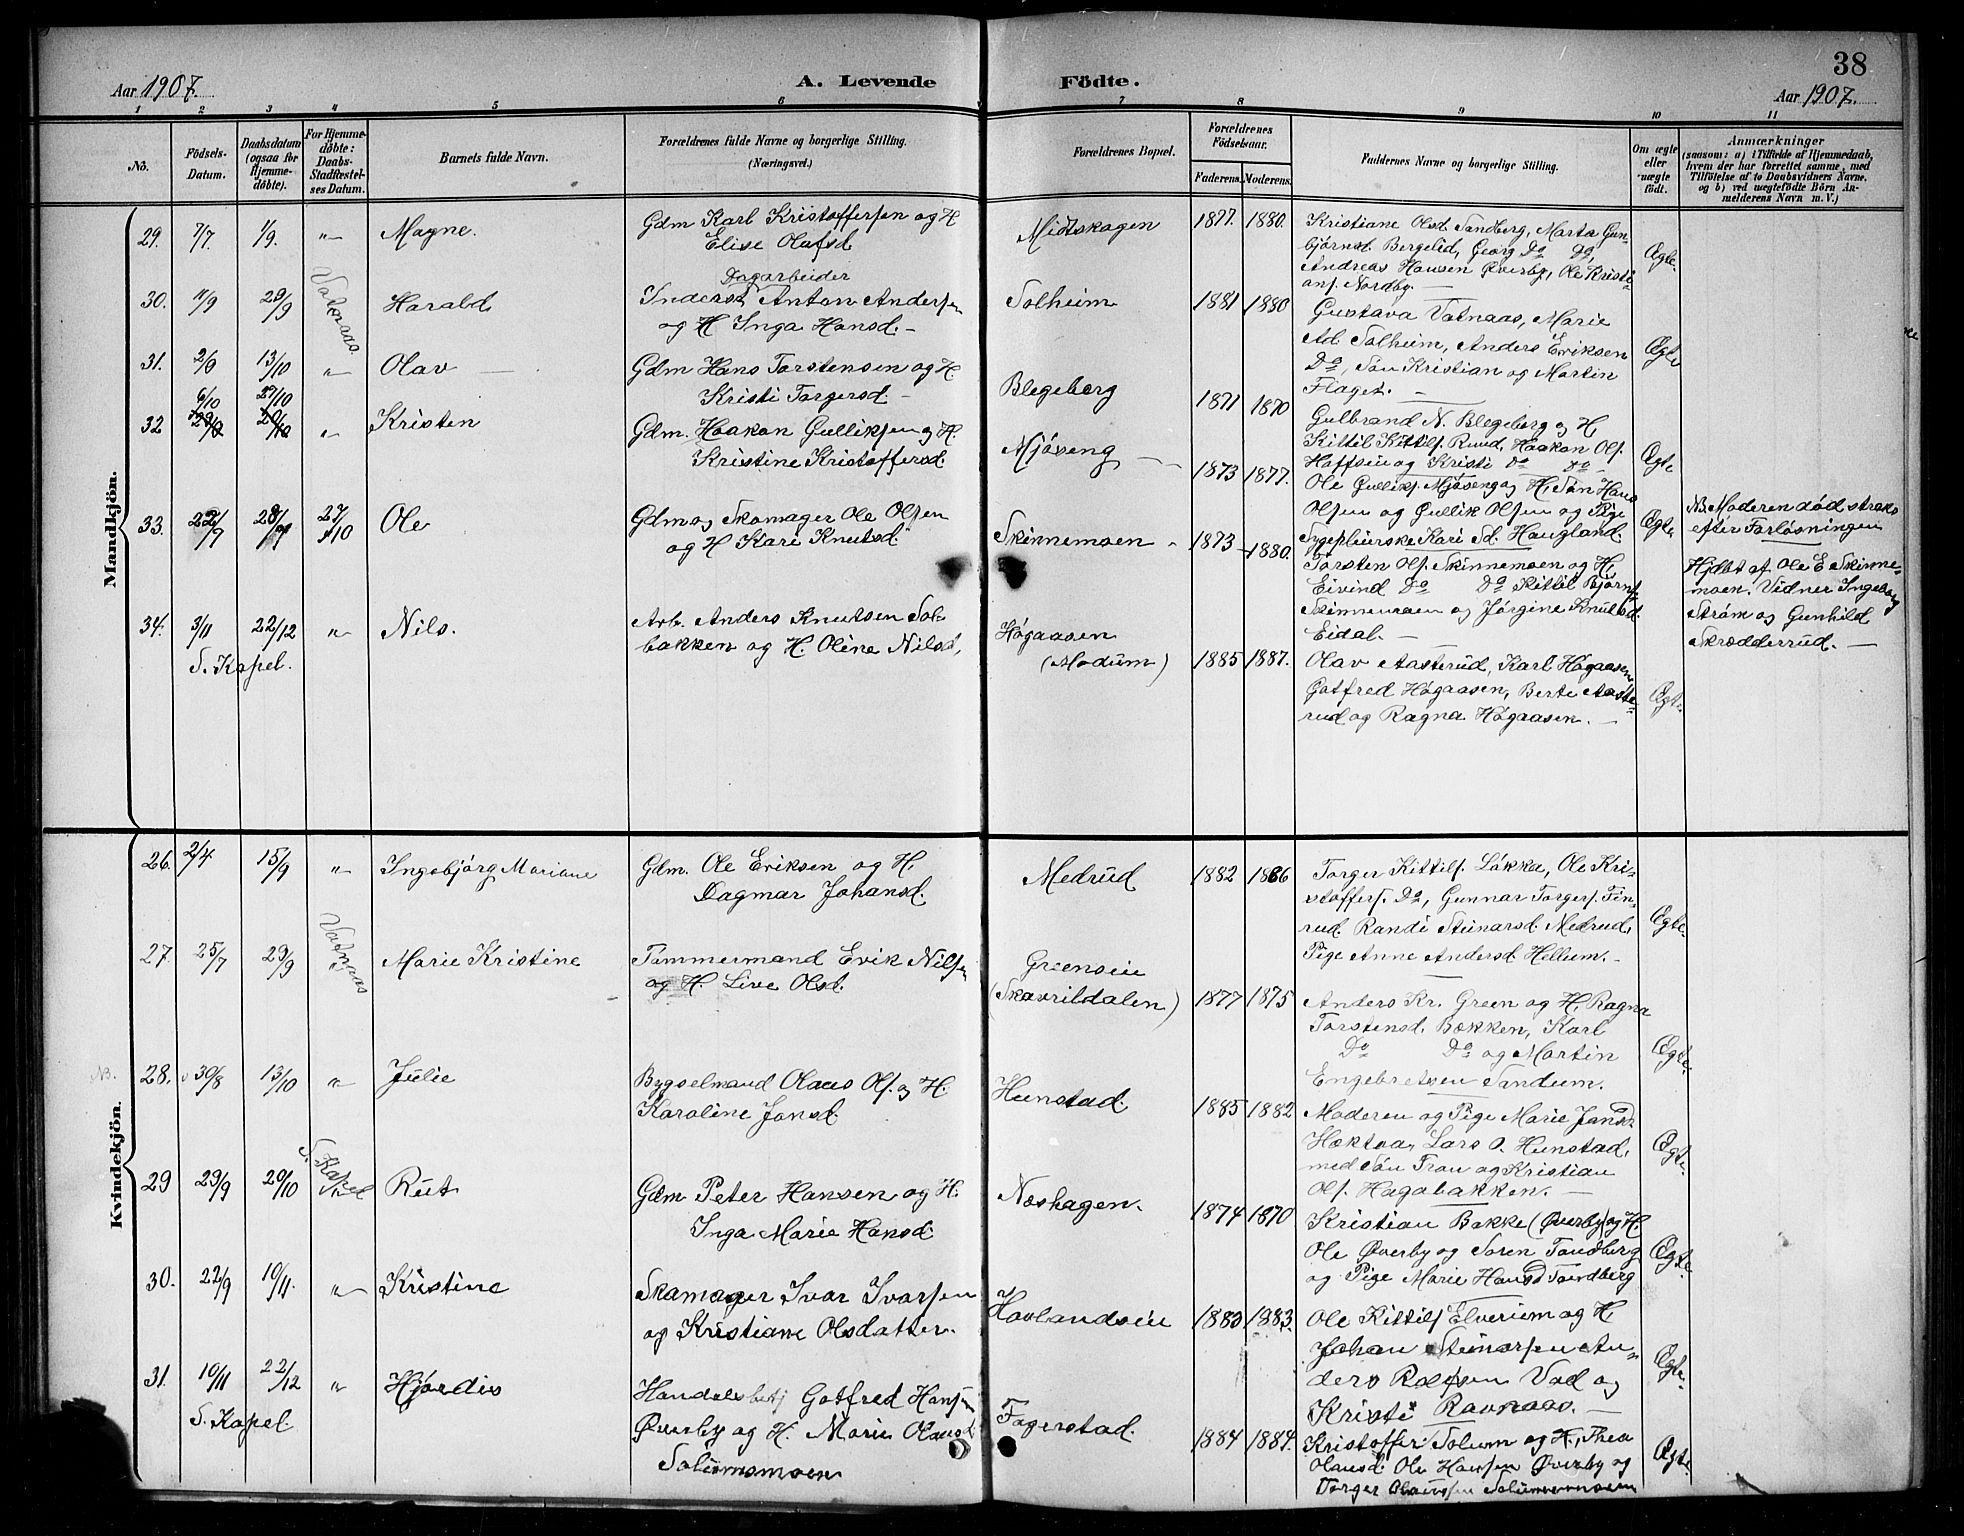 38
Aar 1907.
A. Levende
Födte.
Aar 1907.
1 2 3 4 5 6 7 8 9 10 11
No.
Födsels-
Datum.
Daabsdatum
(ogsaa for
Hjemme-
døbte).
For Hjemme-
døbte:
Daabs-
Stadfæstel-
ses Datum.
Barnets fulde Navn.
Forældrenes fulde Navne og borgerlige Stilling.
(Næringsvei.)
Forældrenes Bopæl.
Forældrenes
Födselsaar.
Faderens. Moderens.
Faddernes Navne og borgerlige Stilling.
Om ægte
eller
uægte
født.
Anmærkninger
(saasom: a) i Tilfælde af Hjemmedaab,
hvem der har forrettet samme, med
Tilföielse af to Daabsvidners Navne,
og b) ved uægtefödte Börn An-
melderens Navn m. V.)
Mandkjön.
29. 7/7 1/9 " Magne.
Gdm Karl Kristoffersen og H.
Elise Olafsd.
Midtskogen
1877. 1880.
Kristiane Olsd. Sandberg, Marta Gun-
bjørnsd. Bergelid, Georg Do Do,
Andreas Hansen Øverby, Ole Kristi-
ans. Nordby.
Ægte.
30. 11/9 29/9 Vatnaas. Harald
Dagarbeider
Inderst Anton Andersen
og H. Inga Hansd.
Solheim
1881 1880
Gustava Vatnaas, Marie
Ad. Solheim, Anders Eriksen
Do, Søn Kristian og Martin
Flaget.
Ægte
31. 2/9 13/10 " Olav
Gdm Hans Torstensen og H.
Kristi Torgersd.
Blegeberg
1871 1870
Gulbrand N. Blegeberg og H,
Kittil Kittils. Ruud, Haakon Ols.
Hoffsein og Kristi Do Do
Ægte
32 6/10 27/10 " Kristen
Gdm. Haakon Gulliksen og H.
Kristine Kristoffersd.
Mjøseng
1873 1877.
Ole Gulliks. Mjøseng og H, Søn Hans
Olsen og Gullik Olsen og Pige
Sygepleierske Kari Sd. Haugland.
Ægte
33. 22/9 28/9 27/10 Ole
Gdm og Skomager Ole Olsen
og H Kari Knutsd.
Skinnemoen
1873 1880.
Torsten Ols. Skinnemoen og H,
Eivind Do Do Kittil Bjørns.
Skinnemoen og Jørgine Knutsd.
Eidal.
NB. Moderen død straks
efter Forløsningen
Hjdbt af Ole E Skinne-
moen. Vidner Ingeborg
Strøm og Gunhild
Skrædderrud.
34. 3/11 22/12 " Nils.
S. Kapel.
Arb. Anders Knutsen Sol-
bakken og H. Oline Nilsd,
Høgaasen
(Modum)
1885 1887.
Olav Aasterud, Karl Høgaasen,
Gotfred Høgaasen, Berte Aaste-
rud og Ragna Høgaasen.
Ægte.
Kvindekjön.
26. 2/4 15/9 " Ingebjørg Mariane
Gdm. Ole Eriksen og H.
Dagmar Johansd.
Medrud
1882 1886
Torger Kittils. Løkka, Ole Kri-
stoffers. Do, Gunnar Torgers. Fin-
rud, Randi Steinarsd. Medrud,
Pige Anne Andersd Hellum.
Ægte.
27. 25/7 29/9 Vatnaas Marie Kristine
Tømmermand Erik Nilsen
og H. Live Olsd.
Greenseie
(Skavrildalen)
1877 1875
Anders Kr. Green og H, Ragna
Torstensd. Bækken, Karl
Do Do og Martin
Engebretsen Sandum.
Ægte.
NB. 28. 30/8 13/10 " Julie
Bygselmand Olaus Ols. og H.
Karoline Jansd.
Hunstad.
1885 1882
Moderen og Pige Marie Jansd.
Hæktoa, Lars O. Hunstad,
med Søn Tron og Kristian
Ols. Hagabakken.
Ægte.
29 29/9 20/10 S. Kapel Rut
Gdm Peter Hansen og H.
Inga Marie Hansd.
Næshagen.
1874 1870
Kristian Bakke (Øverby) og H.
Ole Øverby og Soren Tandberg
og Pige Marie Hansd Tandberg
Ægte.
30. 22/9 10/11. " Kristine
Skomager Ivar Ivarsen
og Kristiane Olsdatter.
Hovlandseie
1880 1883.
Ole Kittils Elverum og H,
Johan Steinarsen An-
ders Rolfsen Vad og
Kristi Ravnaas.
Ægte.
31. 10/11 22/12 " Hjørdis
S. Kapel.
Handelsbetj Gotfred Hansen
Øverby og H. Marie Olausd
Solumsmoen
Fagerstad.
1884 1884.
Kristoffer Solum og H, Thea
Olausd. Ole Hansen Øverby og
Torger Olaussen Solumsmoen
Ægte.